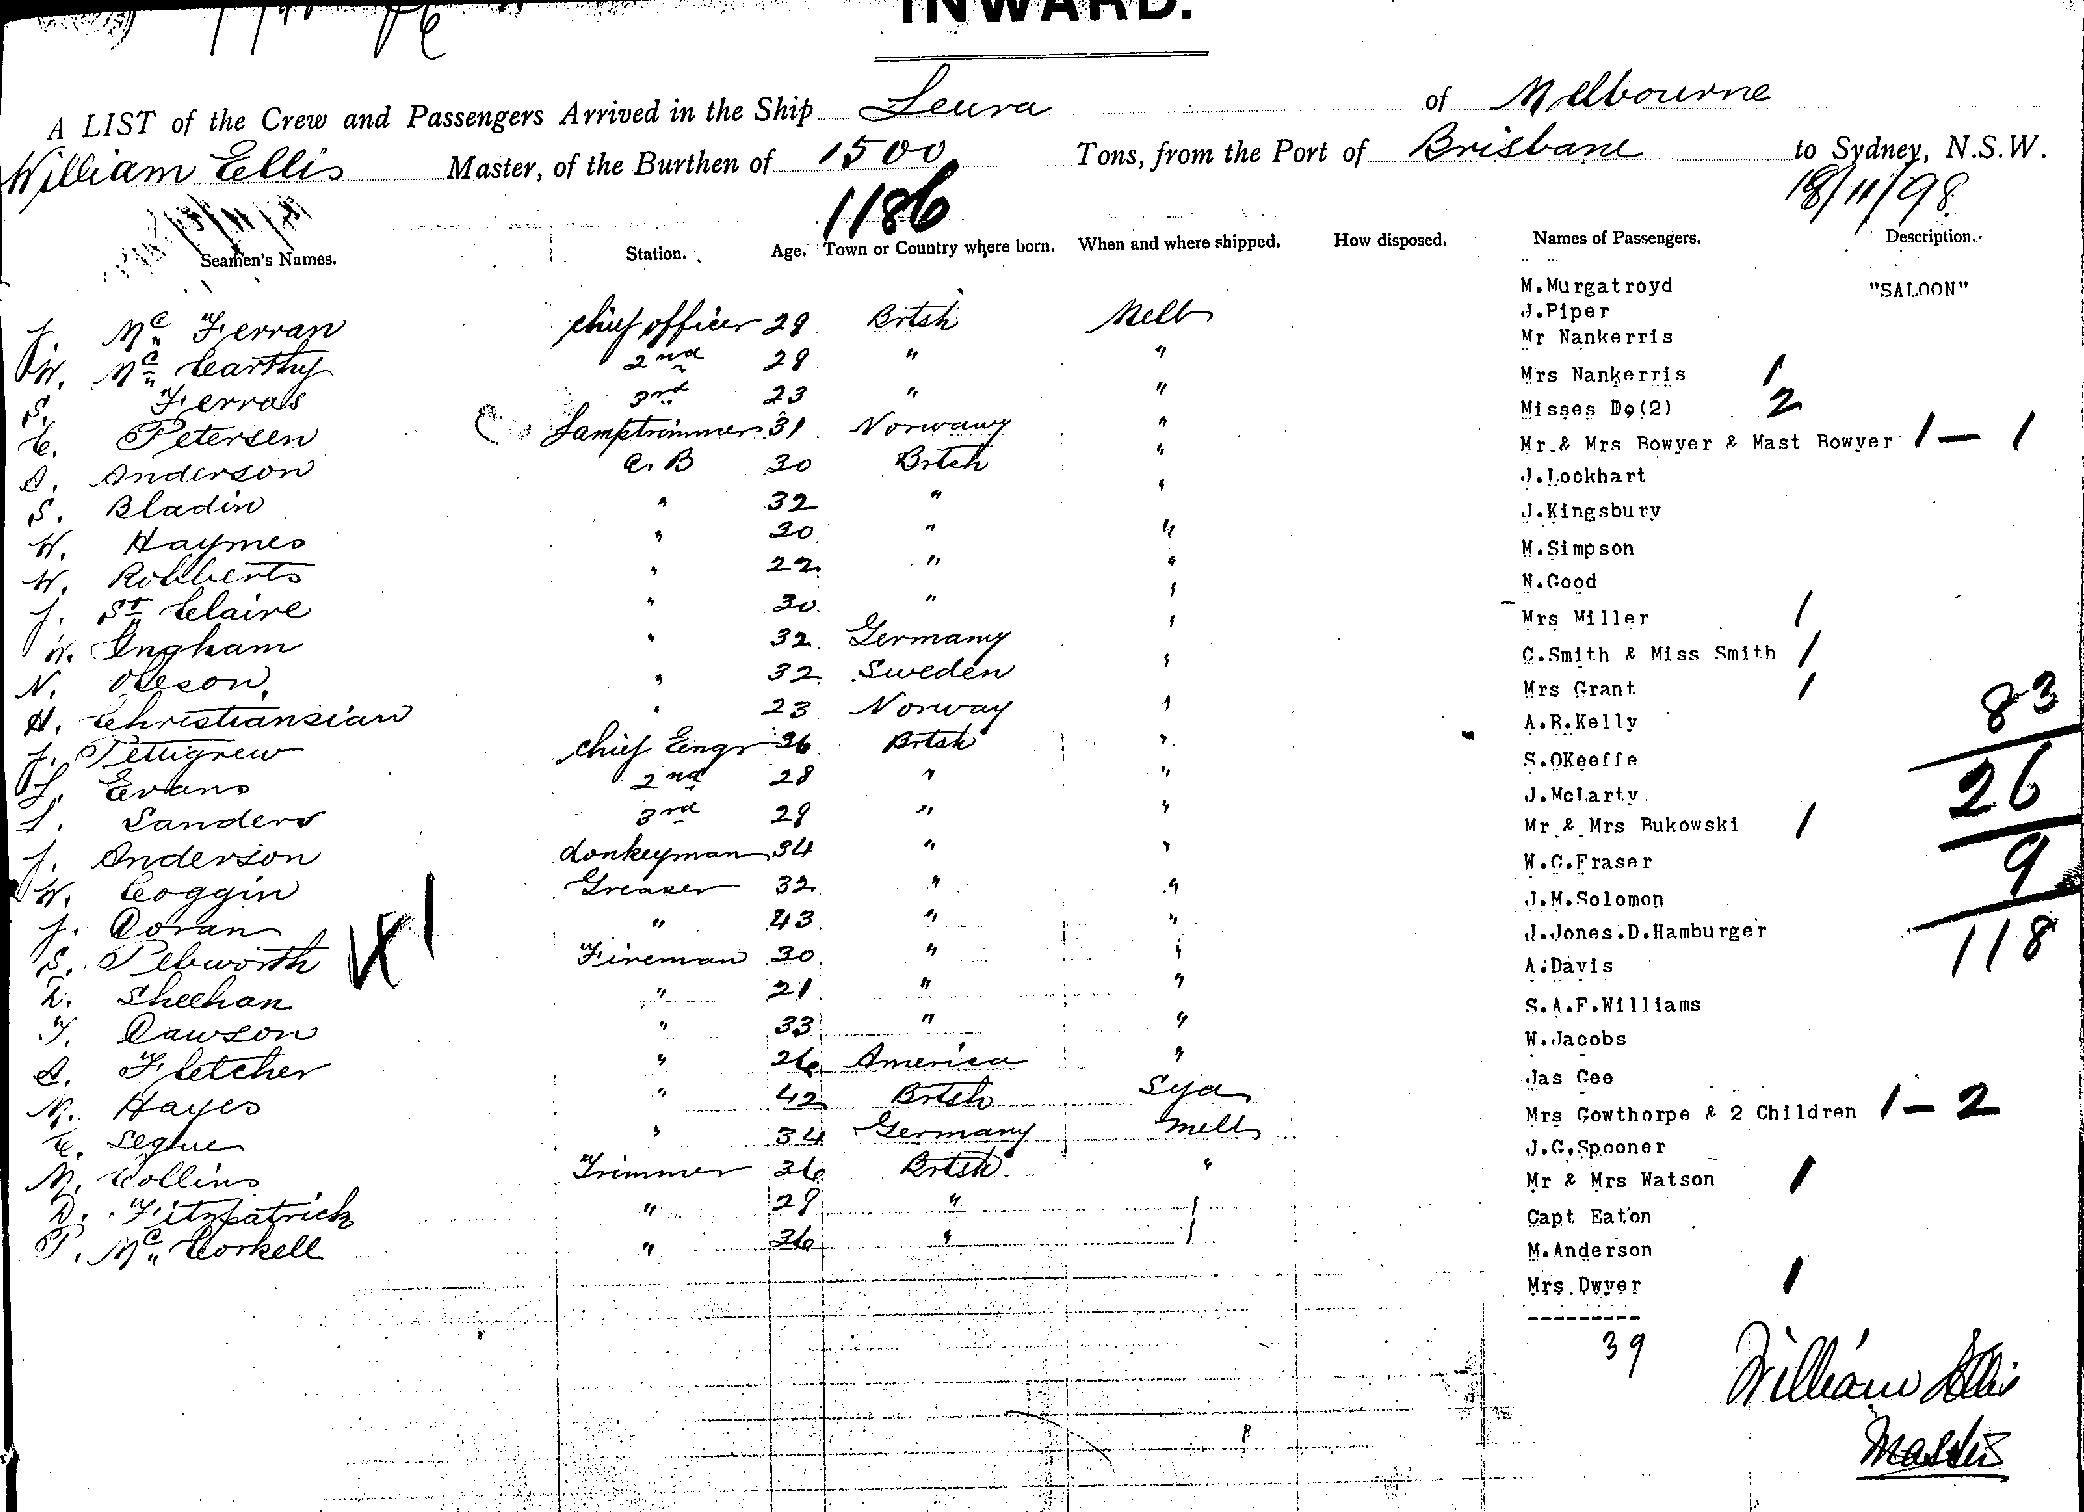 INWARD.
A LIST of the Crew and Passengers Arrived in the Ship Leura of Melbourne
William Ellis Master, of the Burthen of 1500 Tons, from the Port of Brisbane to Sydney, N.S.W.
1186 18/11/98
Seamen's Names. Station. Age. Town or Country where born. When and where shipped. How disposed. Names of Passengers. Description.
J. Mc Ferran chief officer 29 Brtsh Melb
W. Mc Carthy 2nd 28 " "
S. Ferras 3rd 23 " "
C. Petersen Lamptrimmer 31 Norwany "
A. Anderson A. B 30 Brtsh "
S. Bladin " 32 " "
W. Haymes " 30 " "
W. Robberts " 22 " "
J. St Claire " 30 " "
W. Ingham " 32 Germany "
N. Oleson " 32 Sweden "
H. Christiansian " 23 Norway "
J. Pettigrew chief Eengr 36 Brtsh "
L. Evans 2nd 28 " "
L. Sanders 3rd 29 " "
J. Anderson donkeyman 34 " "
W. Coggin Greaser 32 " "
J. Doran " 43 " "
S. Pebworth Fireman 30 " "
D. Sheehan " 21 " "
T. Dawson " 33 " "
A. Fletcher " 26 America "
M. Hayes " 42 Brtsh Syd
C. Legue " 34 Germany Melb
M. Collins Trimmer 36 Brtsh "
D. Fitzpatrick " 29 "
P. Mc Corkell " 36 "
M.Murgatroyd "SALOON"
J.Piper
Mr Nankerris
Mrs Nankerris 1
Misses Do(2) 2
Mr & Mrs Bowyer & Mast Bowyer 1 – 1
J.Lockhart
J.Kingsbury
M.Simpson
N.Good
Mrs Miller 1
C.Smith & Miss Smith 1
Mrs Grant 1
A.R.Kelly
S.OKeeffe
J.McLarty
Mr & Mrs Bukowski 1
W.C.Fraser
J.M.Solomon
J.Jones.D.Hamburger
A.Davis
S.A.F.Williams
W.Jacobs
Jas Gee
Mrs Gowthorpe & 2 Children 1 – 2
J.G.Spooner
Mr & Mrs Watson 1
Capt Eaton
M.Anderson
Mrs Dwyer 1
39
83
26
9
118
William Ellis
Master